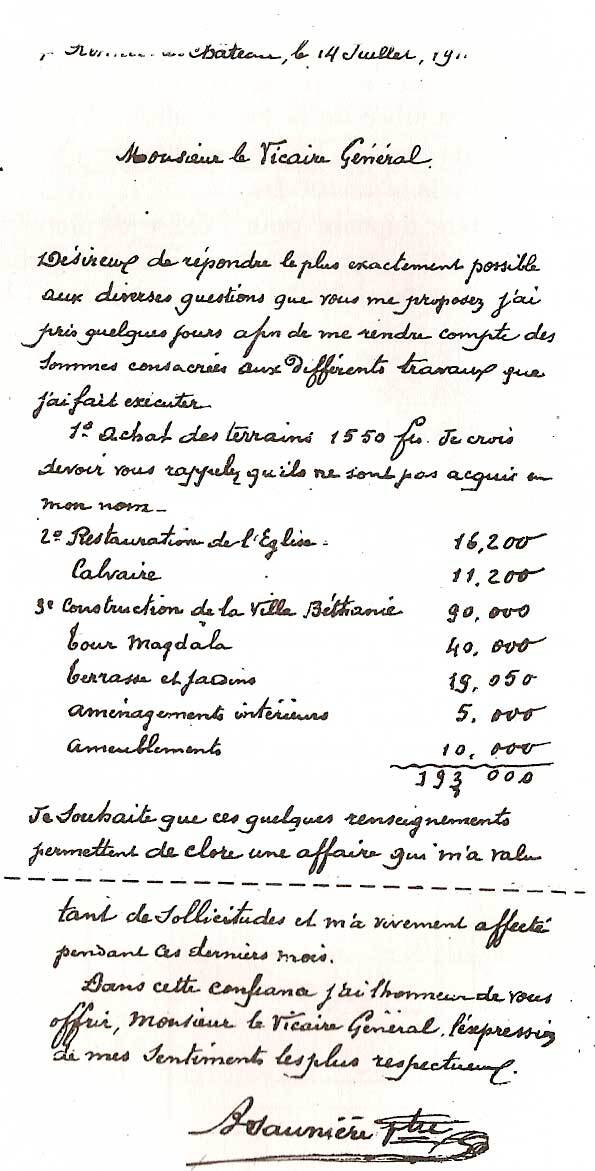 Château, le 14 Juillet, 19
Monsieur le Vicaire Général.
Désireux de répondre le plus exactement possible
aux diverses questions que vous me proposez j'ai
pris quelques jours afin de me rendre compte des
sommes consacrées aux différents travaux que
j'ai fait exécuter
1º Achat des terrains 1550 frs. Je crois
devoir vous rappeler qu'ils ne sont pas acquis en
mon nom -
2º Restauration de l'Eglise - 16,200
Calvaire 11.200
3º Construction de la Villa Béthanie 90,000
tour Magdàla 40,000
terrasse et jardins 19.050
aménagements intérieurs 5.000
Ameublements 10.000
193 000
Je souhaite que ces quelques renseignements
permettent de clore une affaire qui m'a valu
tant de sollicitudes et m'a vivement affecté
pendant ces derniers mois.
Dans cette confiance j'ai l'honneur de vous
offrir, Monsieur le Vicaire Général, l'expression
de mes sentiments les plus respectueux.
BSaunière Ptre